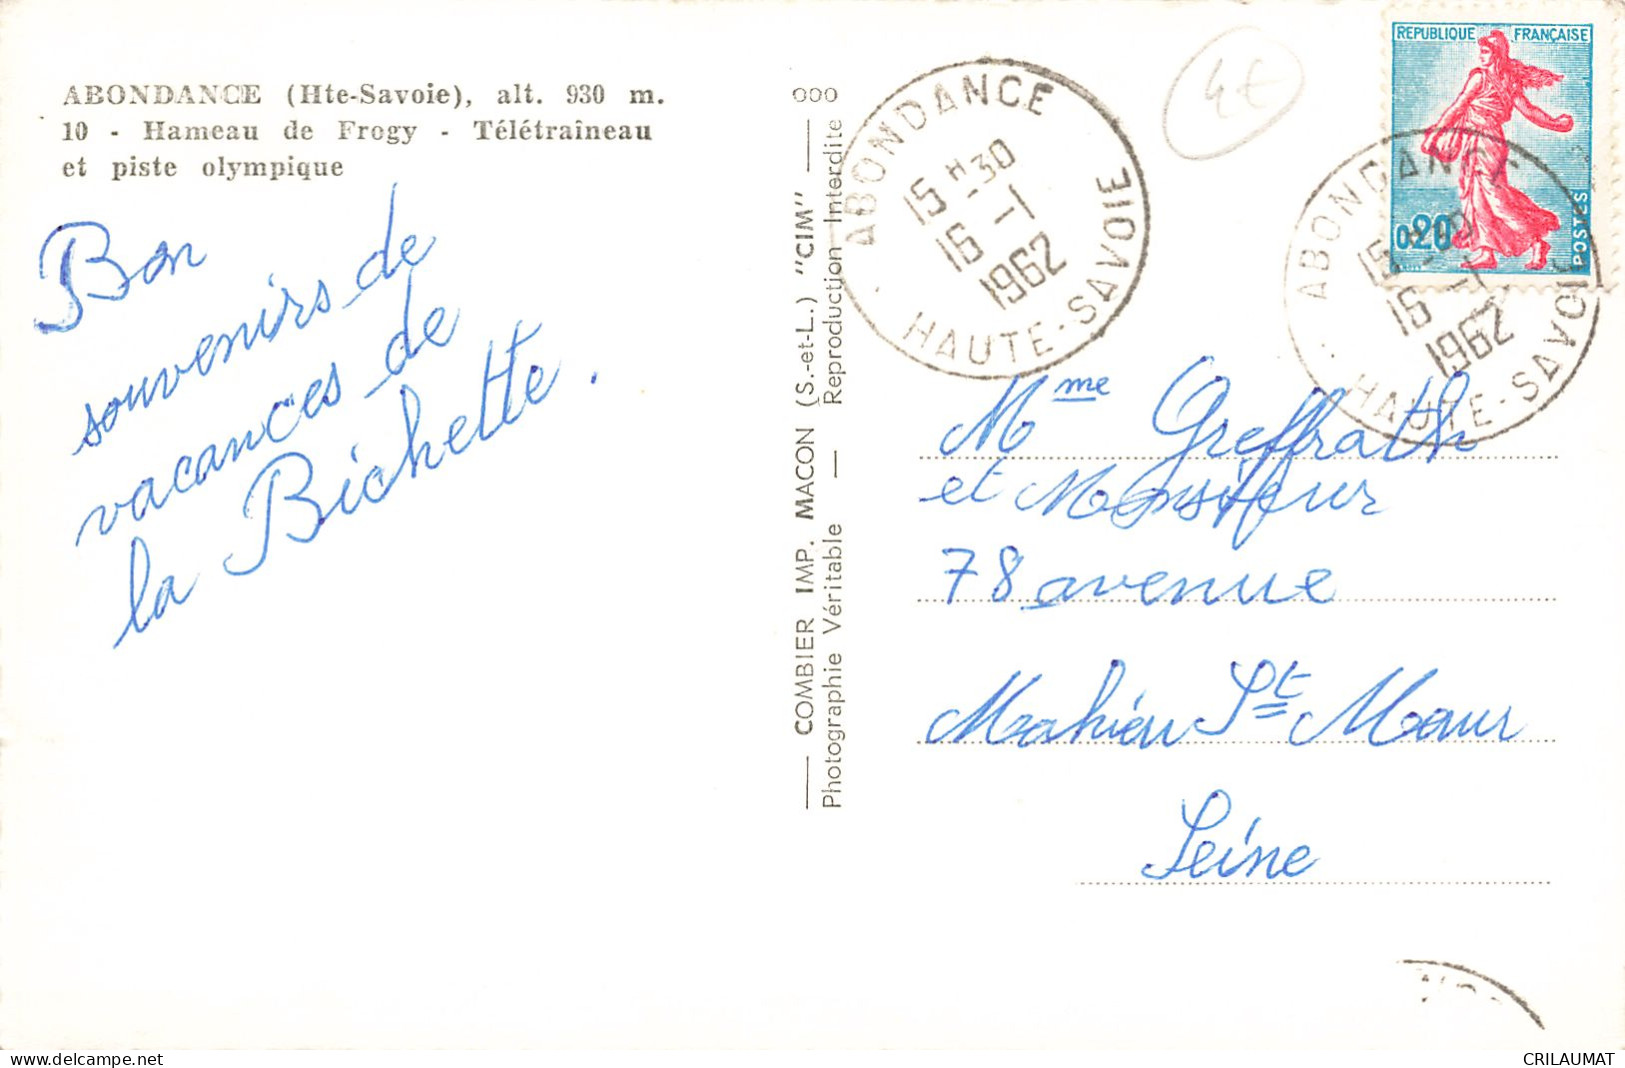 ABONDANCE (Hte-Savoie), alt. 930 m.
10 - Hameau de Frogy - Télétraîneau
et piste olympique
Bon
souvenirs de
vacances de
la Bichette.
COMBIER IMP. MACON (S.-et-L.) "CIM"
Photographie Véritable — Reproduction Interdite
ABONDANCE
15 H 30
16 - 1
1962
HAUTE-SAVOIE
4€
REPUBLIQUE FRANÇAISE
0.20
POSTES
ABONDANCE
16 - 1
1962
HAUTE-SAVOIE
Mme Greffrath
et Monsieur
78 avenue
Mahieu St Maur
Seine
delcampe.net
CRILAUMAT